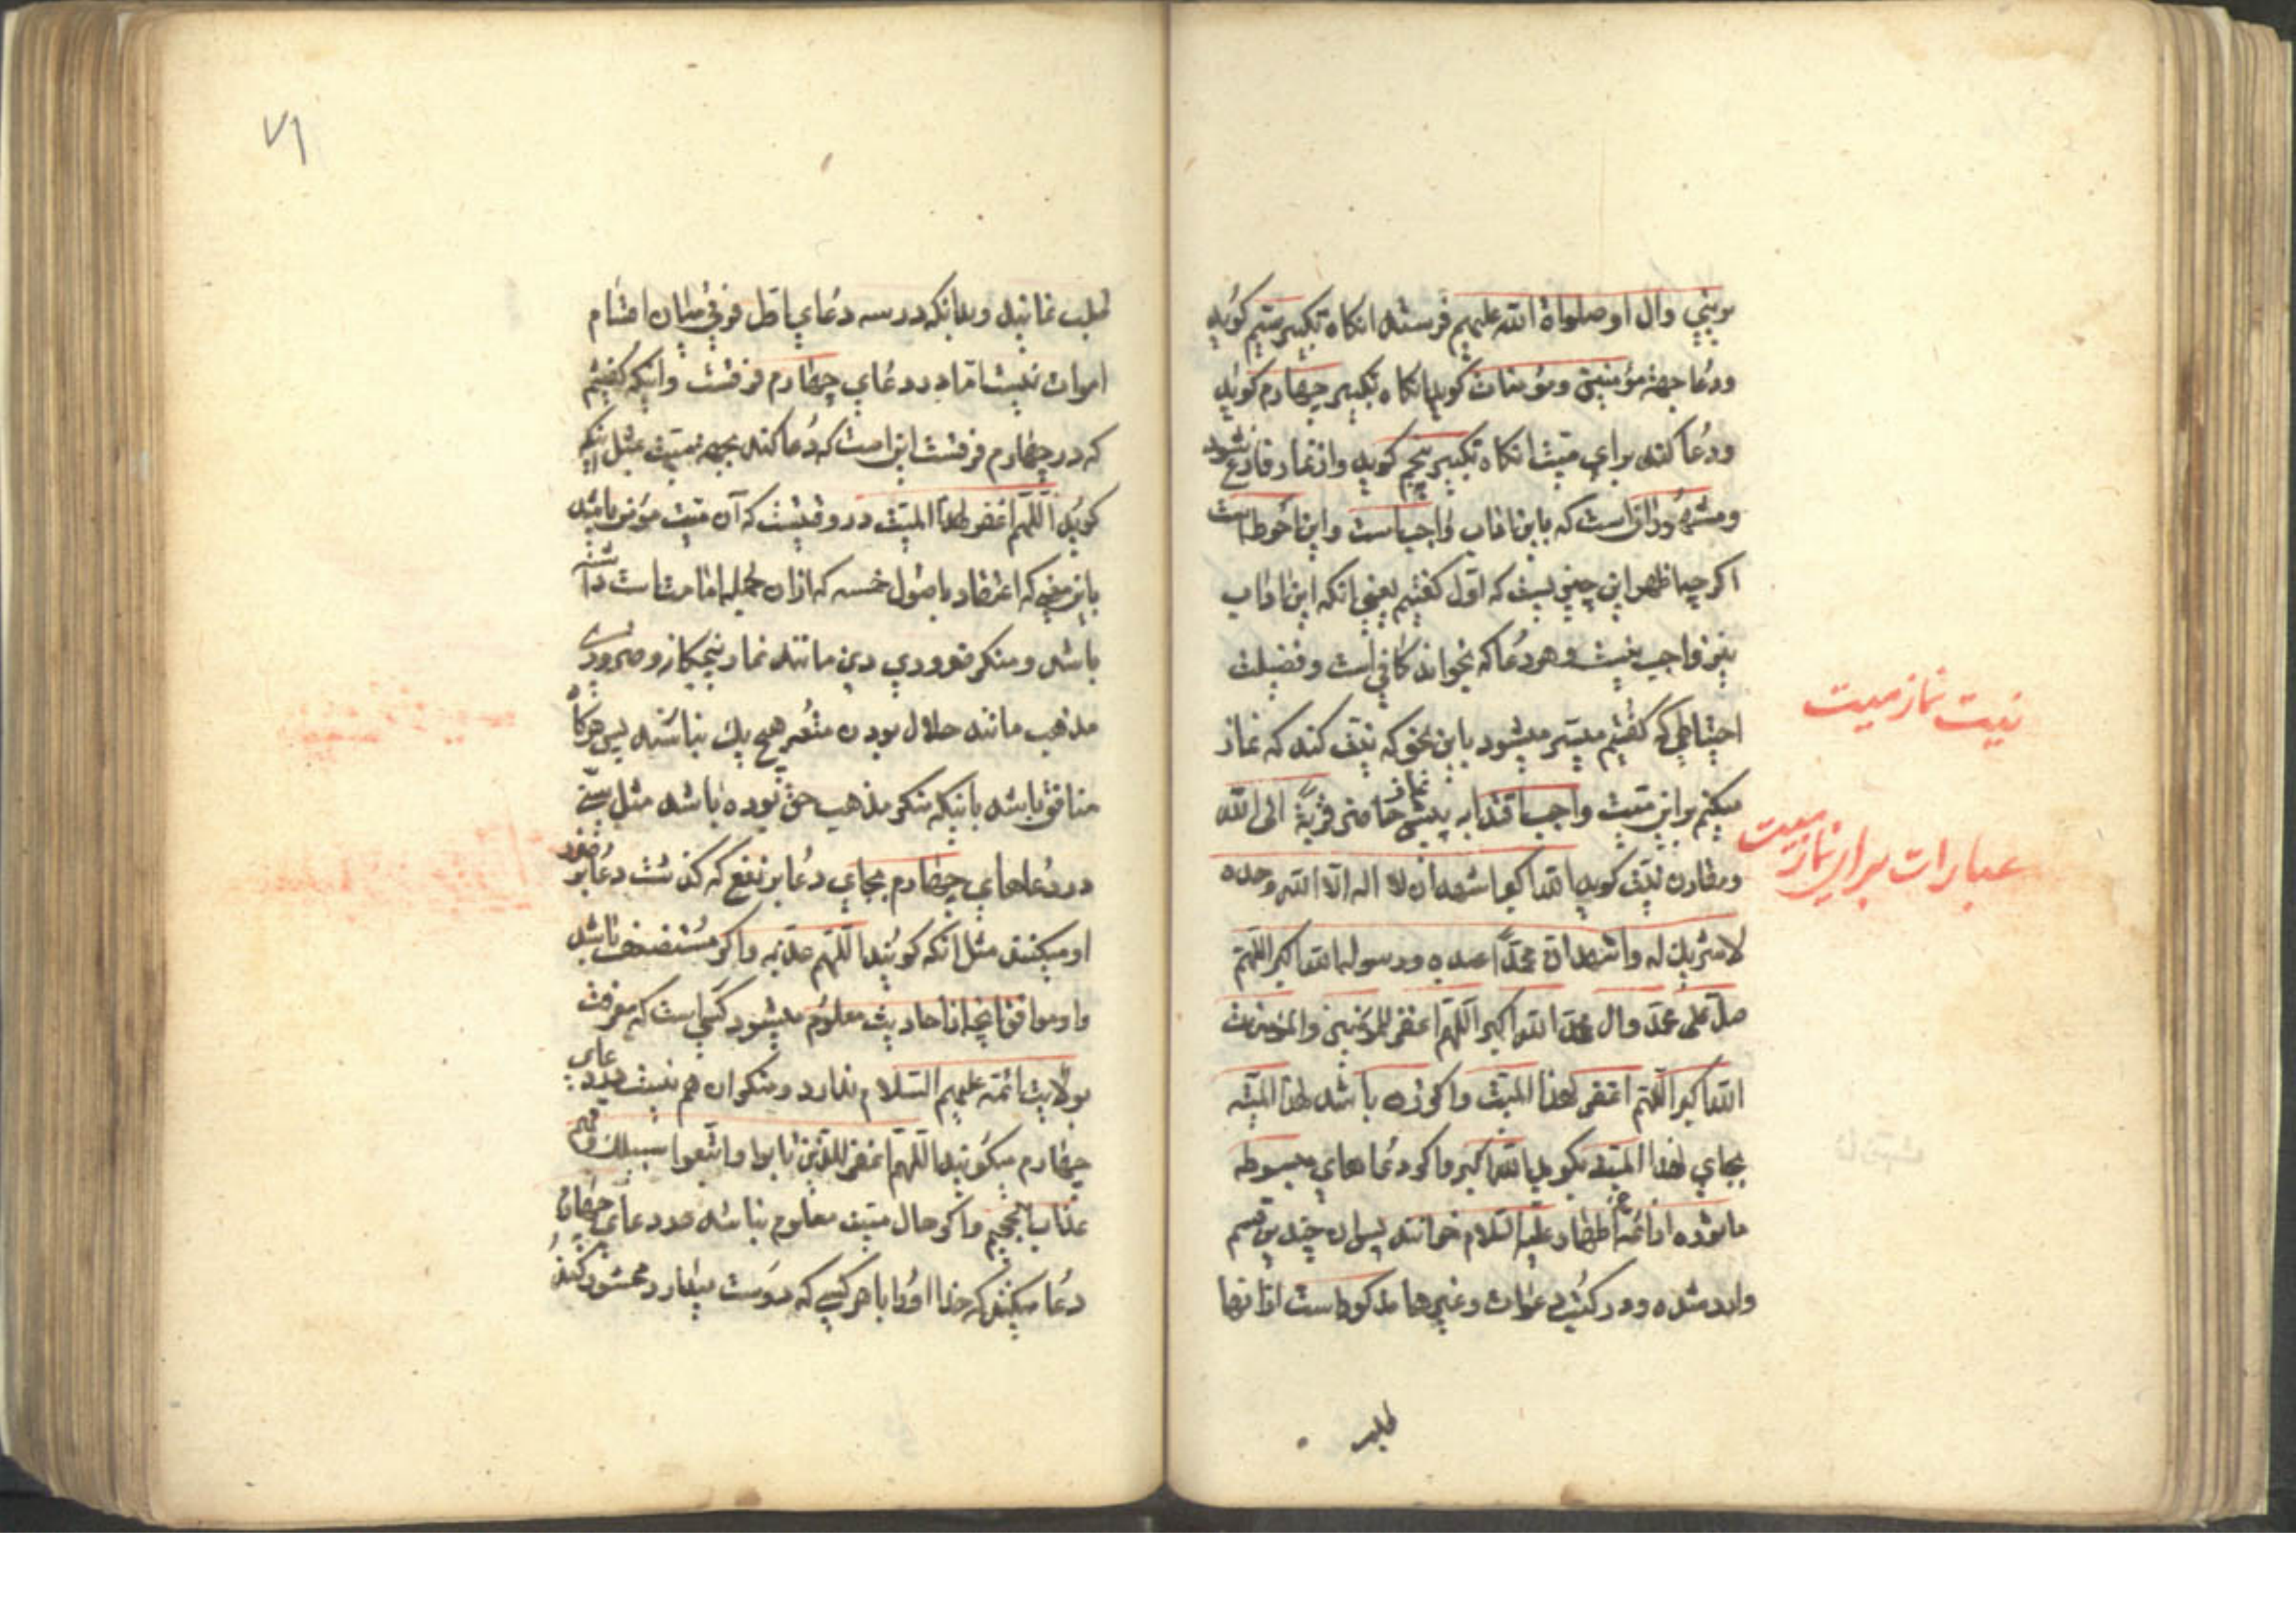 بر نبی وال او صلواة الله علیهم فرستد انکاه تکبیر سیم کوید
ودعا جهة مؤمنین ومؤمنات کوید انکاه تکبیر چهارم کوید
ودعا کند برای میت انکاه تکبیر پنجم کوید واز نماز فارغ شود
ومشهور انست که باین اداب واجب است واین احوط است
اکرچه اظهر این چنین نیست که اول کفتیم یعنی انکه این اداب
نیز واجب نیست وهر دعا که بخواند کافی است وفضیلت
احتیاطی که کفتیم میسر میشود باین نحو که نیت کند که نماز
میکنم بر این میت واجب اقتدا به پیش نماز حاضر قربة الی الله
ومقارن نیت کوید الله اکبر اشهد ان لا اله الا الله وحده
لا شریك له واشهد ان محمدا عبده ورسوله الله اکبر اللهم
صل علی محمد وال محمد الله اکبر اللهم اغفر للمؤمنین والمؤمنات
الله اکبر اللهم اغفر لهذا المیت واکر زن باشد لهذا المیته
بجای لهذا المیت بکوید الله اکبر واکر دعاهای مبسوطه
ماثوره از ائمه اطهار علیه السلام خوانند پس ان چندین قسم
وارد شده ودر کتب دعوات وغیرها مذکور است از انها
طلب
نیت نماز میت
عبارات برای نماز میت
۷۱
طلب نمایند وبدانکه در سه دعای اول فرقی میان اقسام
اموات نیست اما در دعای چهارم فرقست وانیکه کفتیم
که در چهارم فرقست این است که دعا کند بجهة میت مثل اینکه
کوید اللهم اغفر لهذا المیت در وقتیست که آن میت مؤمن باشد
باین معنی که اعتقاد باصول خمسه که از ان جمله امامت است داشته
باشد ومنکر ضروری دین مانند نماز پنجکانه وضروری
مذهب مانند حلال بودن متعه هیچ یك نباشد پس هرکاه
منافق باشد یا نیکه منکر مذهب حق بوده باشد مثل سنی
در دعاهای چهارم بجای دعا بر نفع که کذشت دعا بر ضرر
او میکنند مثل انکه کویند اللهم عذبه واکر مستضعف باشد
واو موافق انچه از احادیث معلوم میشود کسی است که معرفت
بولایت ائمه علیهم السلام ندارد ومنکر ان هم نیست در دعای
چهارم میکویند اللهم اغفر للذین تابوا واتبعوا سبیلك وقهم
عذاب الجحیم واکر حال میت معلوم نباشد در دعای چهارم
دعا میکنند که خدا اورا با هر کسی که دوست میدارد محشور کند